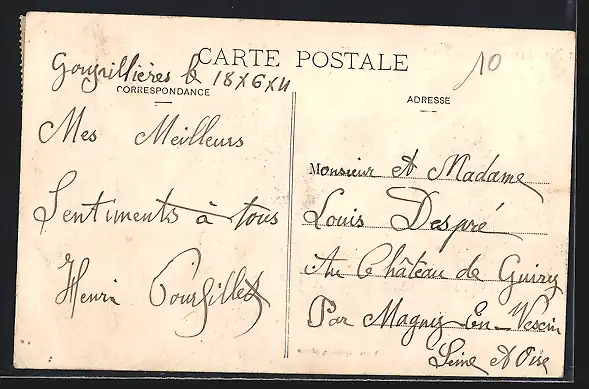 10
CARTE POSTALE
Goupillières le 18x6x11
CORRESPONDANCE
Mes Meilleurs
Sentiments à tous
Henri
ADRESSE
Monsieur et Madame
Louis Despré
Au Château de Guiry
Par Magny-En-Vexin
Seine et Oise